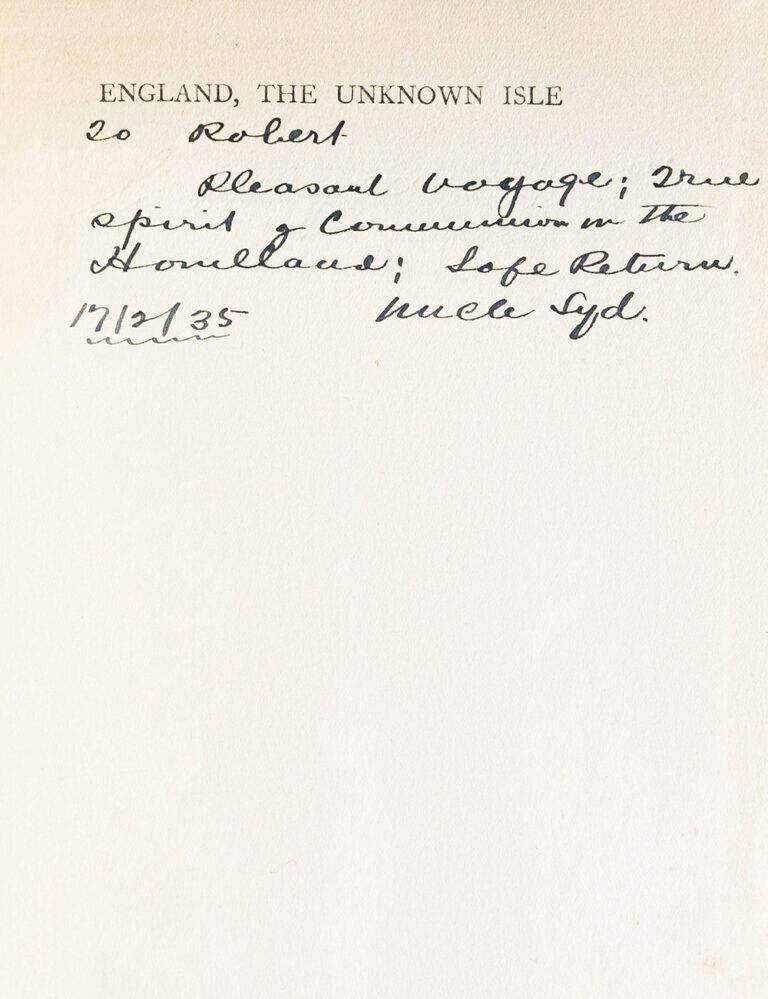 ENGLAND, THE UNKNOWN ISLE
To Robert
Pleasant Voyage; True
spirit of Communion in the
Homeland; Safe Return.
17/2/35 Uncle Syd.